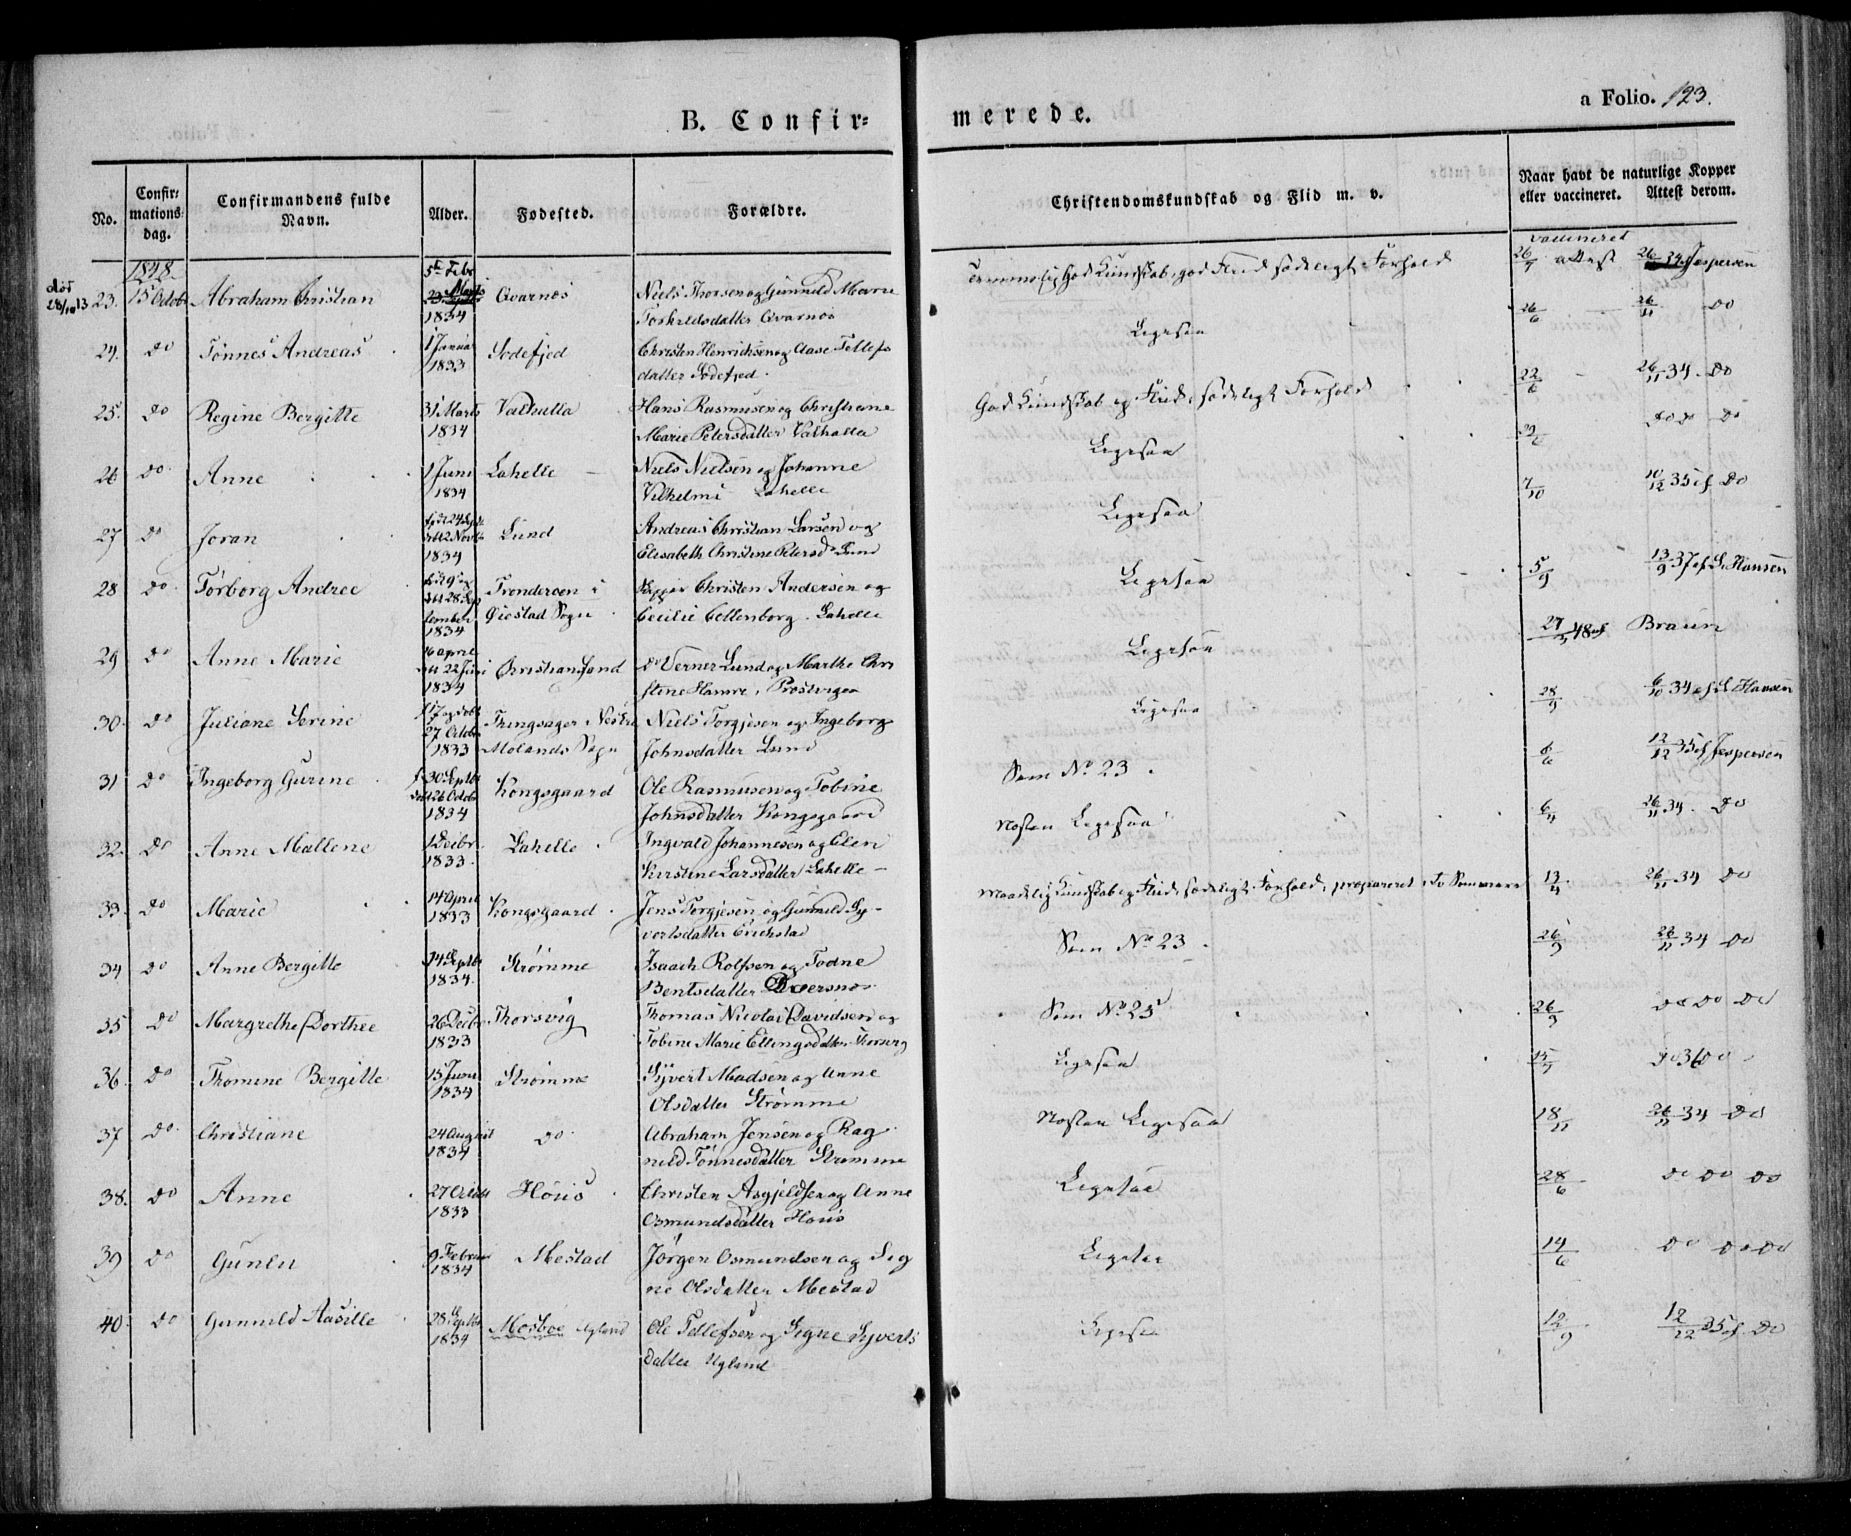 B. Confir-
merede.
a Folio. 123.
No.
Confir-
mations-
dag.
Confirmandens fulde
Navn.
Alder.
Fodested.
Forældre.
Christendomskundskab og Flid m. v.
Naar havt de naturlige Kopper
eller vaccineret. Attest derom.
1848.
vaccineret
død
28/10 13
23. 15 Octobr Abraham Christian
5te Febr
Marts
1834
Qvarnes
Niels Thorsen og Gunnild Marie
Torkeldsdatter Qvarnes
god Kundskab, god Flid sædeligt Forhold
26 attest 26/11 34 Jespersen
24. do Tønnes Andreas
1 Januar
1833
Sodefjed
Christen Henrichsen og Aase Tellefs
datter Sodefjed.
Ligesaa
26/6 26/11 do
25. do Regine Bergitte
31 Marts
1834
Valhalla
Hans Rasmusen og Christiane
Marie Petersdatter Valhalla
God Kundskab og Flid, sædeligt Forhold
22/6 26/11 34. do
26 do Anne
1 Juni
1834
Lahelle
Niels Nielsen og Johanne
Vilhelmi Lahelle
Ligesaa
do do do
27 do Joran
1834
Lund
Andreas Christian Larsen og
Elisabeth Christine Petersd Lund
Ligesaa
7/10 10/12 35 af do
28 do Torborg Andree
1834
Tronderoen i
Oiestad Sogn
Christen Andersen og
Cecilie Cellenborg. Lahelle
Ligesaa
5/9 13/9 37 af L. Hansen
29 do Anne Marie
16 april
22 Juni
1834
Christiansand
Verner Lund og Marthe Chri
stine Hamre, Prostvigen
Ligesaa
27 48 af Braun
30. do Juliane Serine
27 Octobr
1833
Thingsager
Molands Sogn
Niels Torgjesen og Ingeborg
Johnsdatter Lund
Ligesaa
28/9 6/10 34 af L Hansen
31 do Ingeborg Gurine
f 30 Septbr
26 Octobr
1834
Kongsgaard
Ole Rasmusen og Tobine
Johnsdatter Kongsgaard
Som No 23.
6/6 12/12 35 af Jespersen
32. do Anne Mallene
1 Decbr.
1833.
Lahelle
Ingvald Johannesen og Elen
Kirstine Larsdatter Lahelle
Nesten Ligesaa
6/4 26/11 34. do
33. do Marie
14 April
1833
Kongsgaard.
Jens Torgjesen og Gunnild Sy-
vertsdatter Eichstad
Maadelig Kundskab og Flid, sædeligt Forhold, præpareret i to Sommere
13/4 26/11 34 do
34 do Anne Bergitte
14 Septbr
1834.
Strømme
Isaach Rolfsen og Todne
Bentsdatter Dversnes
Som No 23.
26/9 26/11 34 do
35 do Margrethe Dorthee
26 Decbr
1833
Thorsvig
Thomas Nicolai Davidsen og
Tobine Marie Ellingsdatter Thorsvig
Som No 25
26/9 do do do
36. do Thomine Bergitte
15 Juni
1834
Strømme
Syvert Madsen og Anne
Olsdatter Strømme
Ligesaa
do 36 do
37 do. Christiane
24 August
1834
do.
Abraham Jensen og Rag
nild Tønnesdatter Strømme
Nesten Ligesaa
18/11 26/11 34 do
38. do Anne
27 Octobr
1833
Høiis
Christen Asgjeldsen og Anne
Osmundsdatter Høiis
Ligesaa
28/6 do do do
39 do Gunlu
9 Februar
1834
Mestad
Jørgen Osmundsen og Sig
ne Olsdatter Mestad
Ligesaa
14/6 do do do
40. do Gunnild Aasille
28 Septbr
1834
Mosboe Ugland
Ole Tellefsen og Signe Syverts
datter Ugland
Ligesaa
12/9 12/12 35 af do